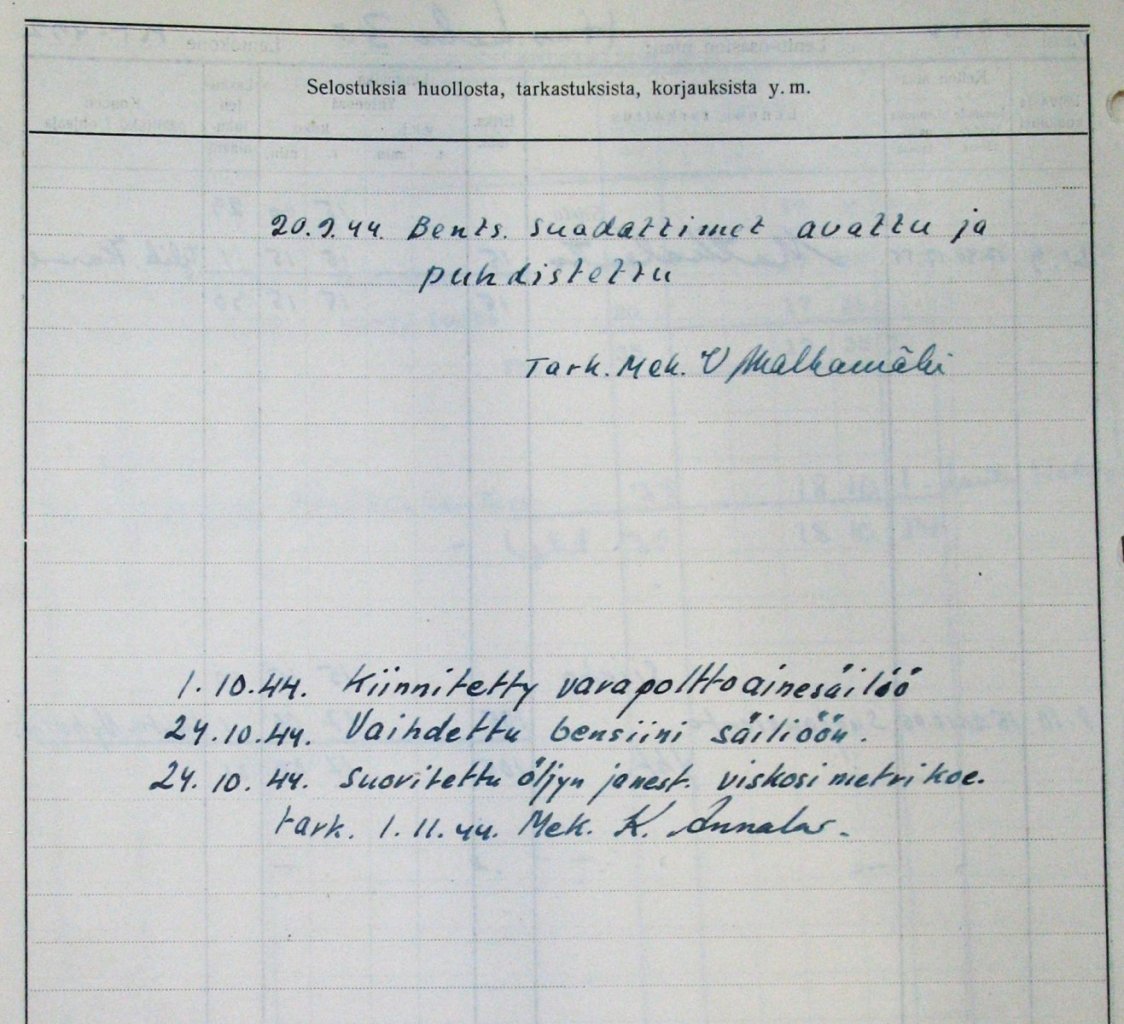 Selostuksia huollosta, tarkastuksista, korjauksista y. m.
20.9.44. Bents. suodattimet avattu ja
puhdistettu
Tark. Mek. V Malkamäki
1.10.44. Kiinnitetty varapolttoainesäilöö
24.10.44. Vaihdettu bensiini säiliöön.
24.10.44. Suoritettu öljyn jänest. viskosimetrikoe.
tark. 1.11.44. Mek. K.